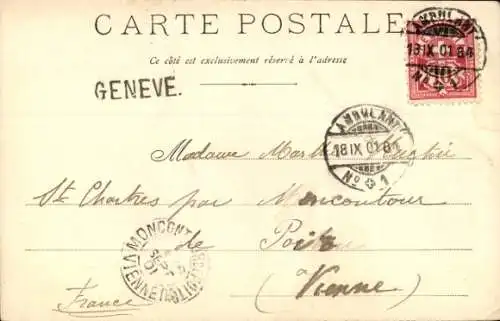 CARTE POSTALE
Ce côté est exclusivement réservé à l'adresse
AMBULANT
18 IX 01 84
No 1
GENEVE.
AMBULANT
18 IX 01 84
No 1
Madame
St Chartres par Moncontour
de
Vienne
France